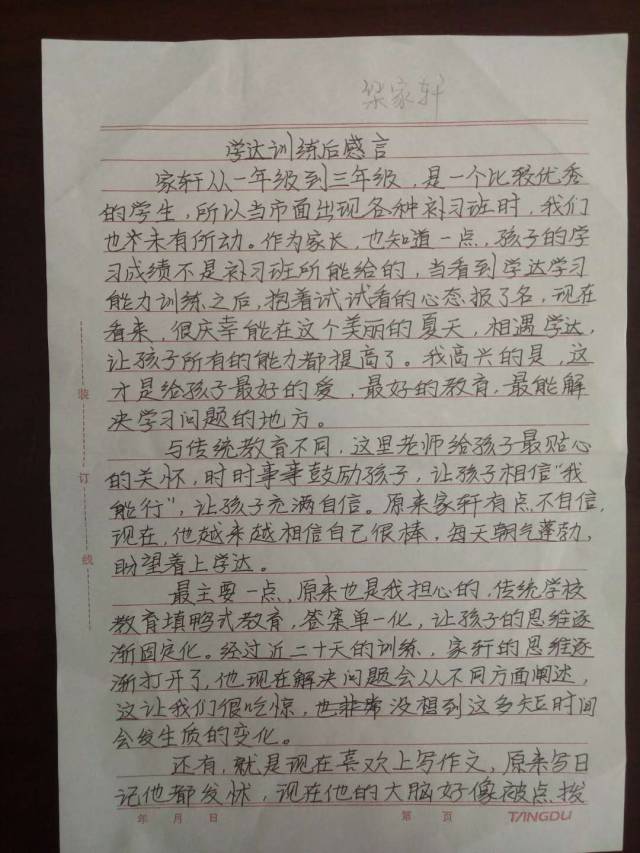 梁家轩
学达训练后感言
家轩从一年级到三年级，是一个比较优秀
的学生，所以当市面出现各种补习班时，我们
也并未有所动。作为家长，也知道一点，孩子的学
习成绩不是补习班所能给的，当看到学达学习
能力训练之后，抱着试试看的心态报了名，现在
看来，很庆幸能在这个美丽的夏天，相遇学达，
让孩子所有的能力都提高了。我高兴的是，这
才是给孩子最好的爱，最好的教育，最能解
决学习问题的地方。
与传统教育不同，这里老师给孩子最贴心
的关怀，时时事事鼓励孩子，让孩子相信“我
能行”，让孩子充满自信。原来家轩有点不自信，
现在，他越来越相信自己很棒，每天朝气蓬勃，
盼望着上学达。
最主要一点，原来也是我担心的，传统学校
教育填鸭式教育，答案单一化，让孩子的思维逐
渐固定化。经过近二十天的训练，家轩的思维逐
渐打开了，他现在解决问题会从不同方面阐述，
这让我们很吃惊，也非常没想到这多短时间
会发生质的变化。
还有，就是现在喜欢上写作文，原来写日
记他都发怵，现在他的大脑好像被点拨
装
订
线
年 月 日 第 页 TANGDU